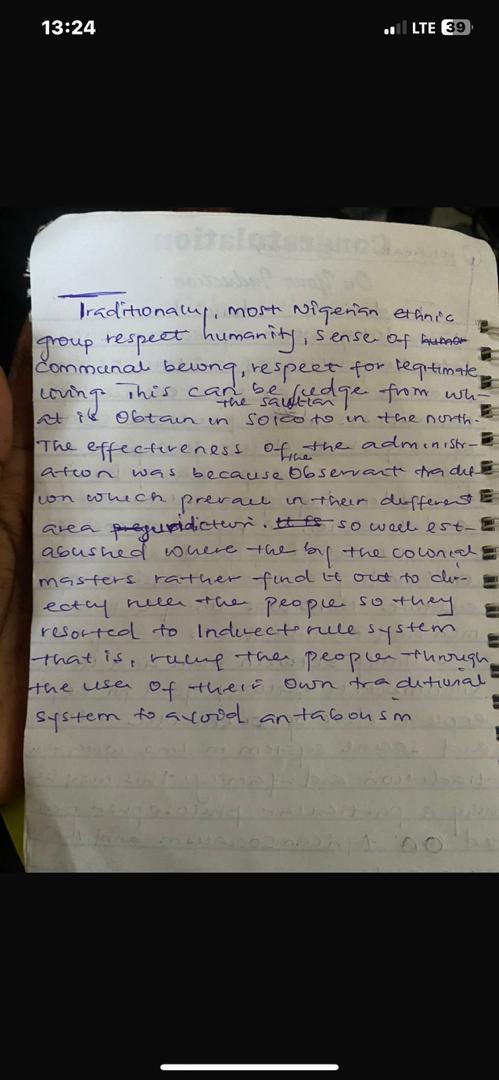 13:24
LTE 39
Congratulation
On Your Induction
Traditionally, most Nigerian ethnic
group respect humanity, sense of humor
communal belong, respect for legitimate
living. This can be judge from wh-
the
at is obtain in Sokoto in the north.
The effectiveness of the administr-
ation was because the observant tradit
ion which prevail in their different
area . so well est-
ablished where the by the colonial
masters rather find it out to dir-
ectly rules the people so they
resorted to Indirect rule system
that is, ruling the people through
the user of their own traditional
system to avoid antabolism